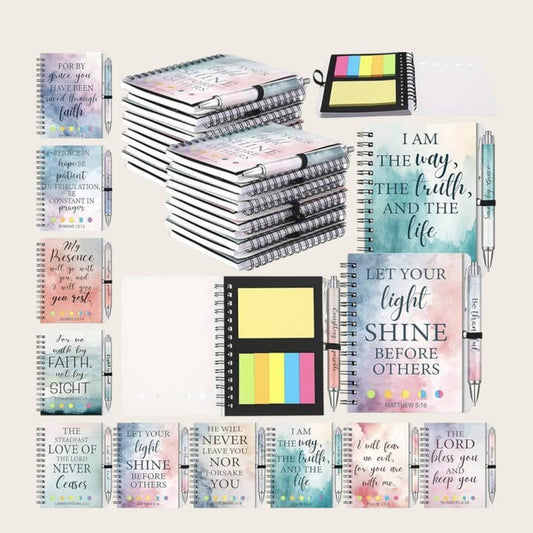 FOR BY
grace you
HAVE BEEN
saved through
faith
REJOICE IN
hope BE
patient
IN TRIBULATION,
BE
CONSTANT IN
prayer
ROMANS 12:12
My
Presence
will go with
you, and
I will give
you rest.
For we
walk by
FAITH,
not by
SIGHT
I AM
THE way,
THE truth,
AND THE
life
LET YOUR
light
SHINE
BEFORE
OTHERS
MATTHEW 5:16
THE
STEADFAST
LOVE OF
THE LORD
NEVER
Ceases
LAMENTATIONS 3:22
LET YOUR
light
SHINE
BEFORE
OTHERS
HE WILL
NEVER
LEAVE YOU
NOR
FORSAKE
YOU
I AM
THE way,
THE truth,
AND THE
life
I will fear
no evil,
for you are
with me.
PSALM 23:4
THE
LORD
bless you
AND
keep you
NUMBERS 6:24